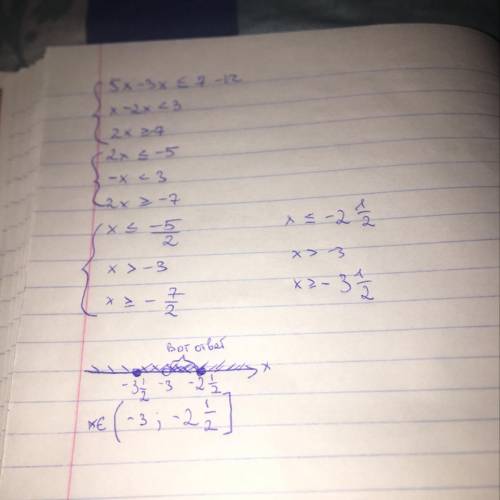 5x-3x ≤ 7 -12
x-2x < 3
2x ≥ 7
2x ≤ -5
-x < 3
2x ≥ -7
x ≤ -5/2
x > -3
x ≥ - 7/2
x ≤ -2 1/2
x > -3
x ≥ - 3 1/2
Вот ответ
x
-3 1/2 -3 -2 1/2
x∈ (-3 ; -2 1/2]